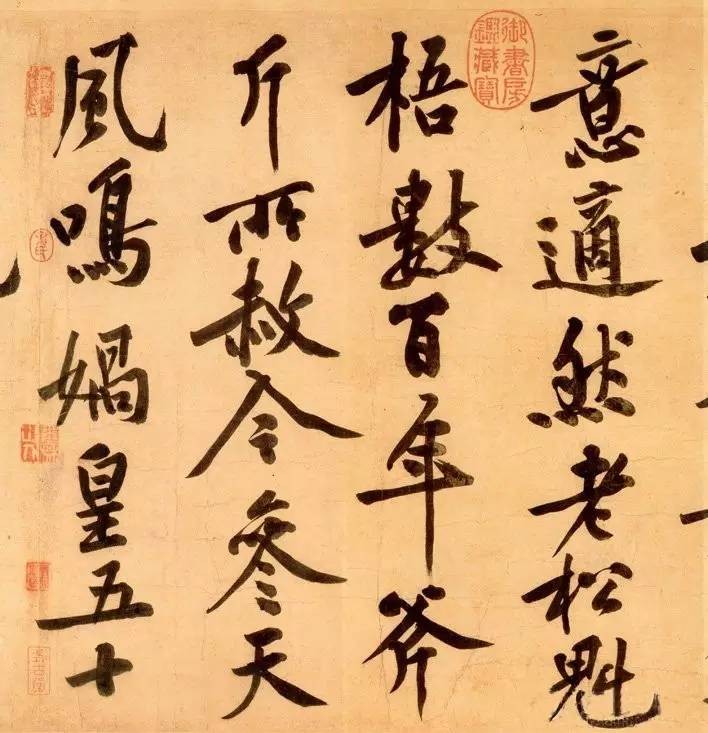 意適然老松魁
梧數百年斧
斤所赦今參天
風鳴媧皇五十
御書房
鑒藏寶